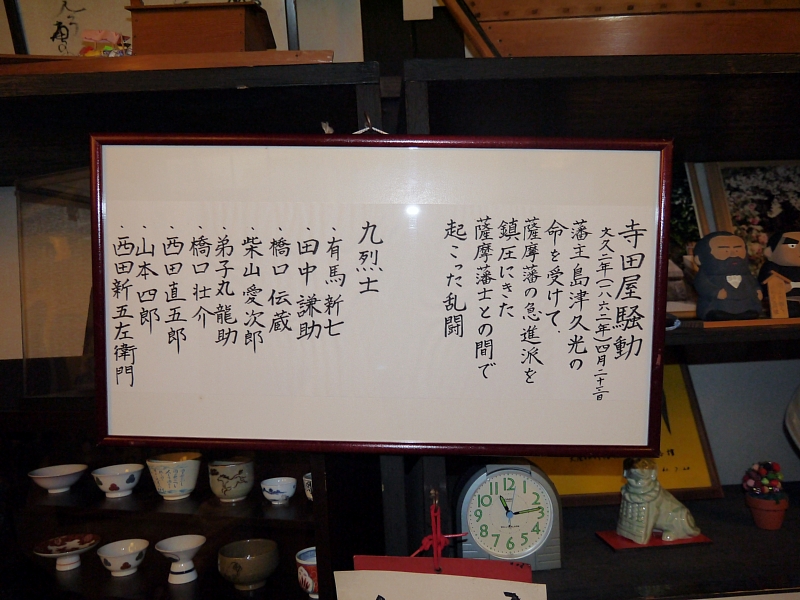 寺田屋騒動
文久二年(一八六二年)四月二十三日
藩主島津久光の
命を受けて、
薩摩藩の急進派を
鎮圧にきた
薩摩藩士との間で
起こった乱闘
九烈士
・有馬新七
・田中謙助
・橋口伝蔵
・柴山愛次郎
・弟子丸龍助
・橋口壮介
・西田直五郎
・山本四郎
・西田新五左衛門
12
1
2
3
4
5
6
7
8
9
10
11